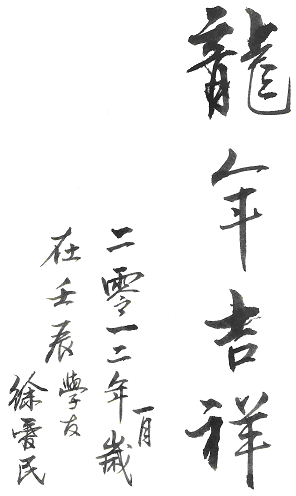 龍年吉祥
二零一二年一月歲
在壬辰學友
徐晉民